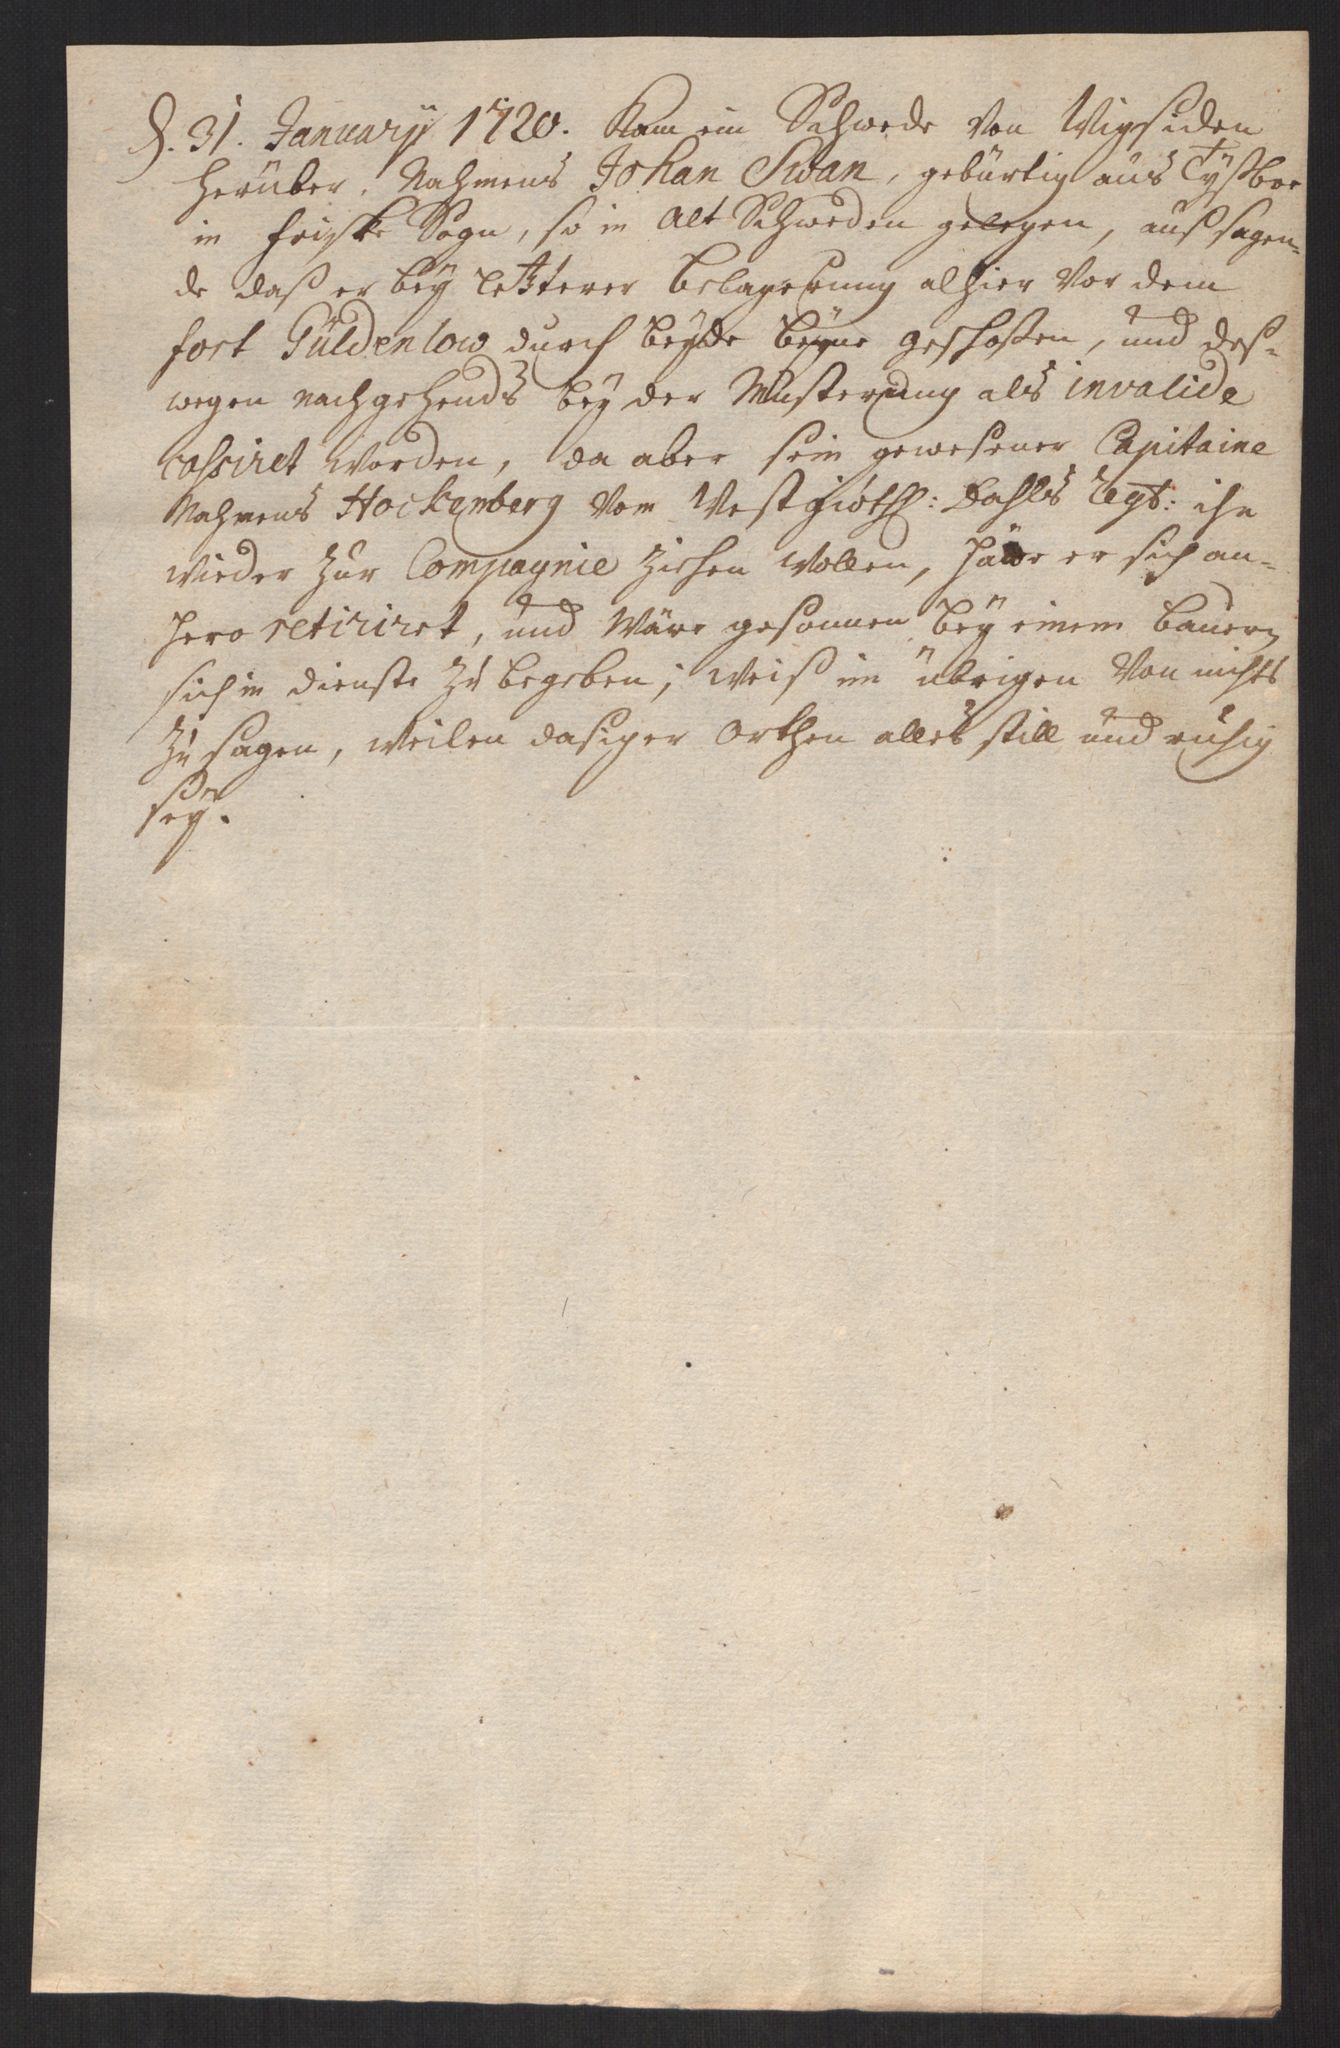 d. 31. January 1720. Kam ein Schwede von Wigsiden
herüber, Nahmens Johan Swan, gebürtig aus Tÿßboe
in friske Sogn, so in Alt Schweden gelegen, auß sagen-
de daß er beÿ letzterer Belagerung alhier vor dem
fort Güldenlow durch beÿde beÿne geschoßen, und deß-
wegen nachgehends beÿ der Musterung als invalide
cassiret worden, da aber sein gewesener Capitaine
Nahmens Hockenberg vom Vestgiöth: Dahls Regt: ihn
wieder zur Compagnie ziehen wollen, hätte er sich an-
hero retiriret, und wäre gesonnen beÿ einem bauern
sich in dienste zu begeben; weiß im übrigen von nichts
zu sagen, weilen dasiger Orthen alles still und ruhig
seÿ.